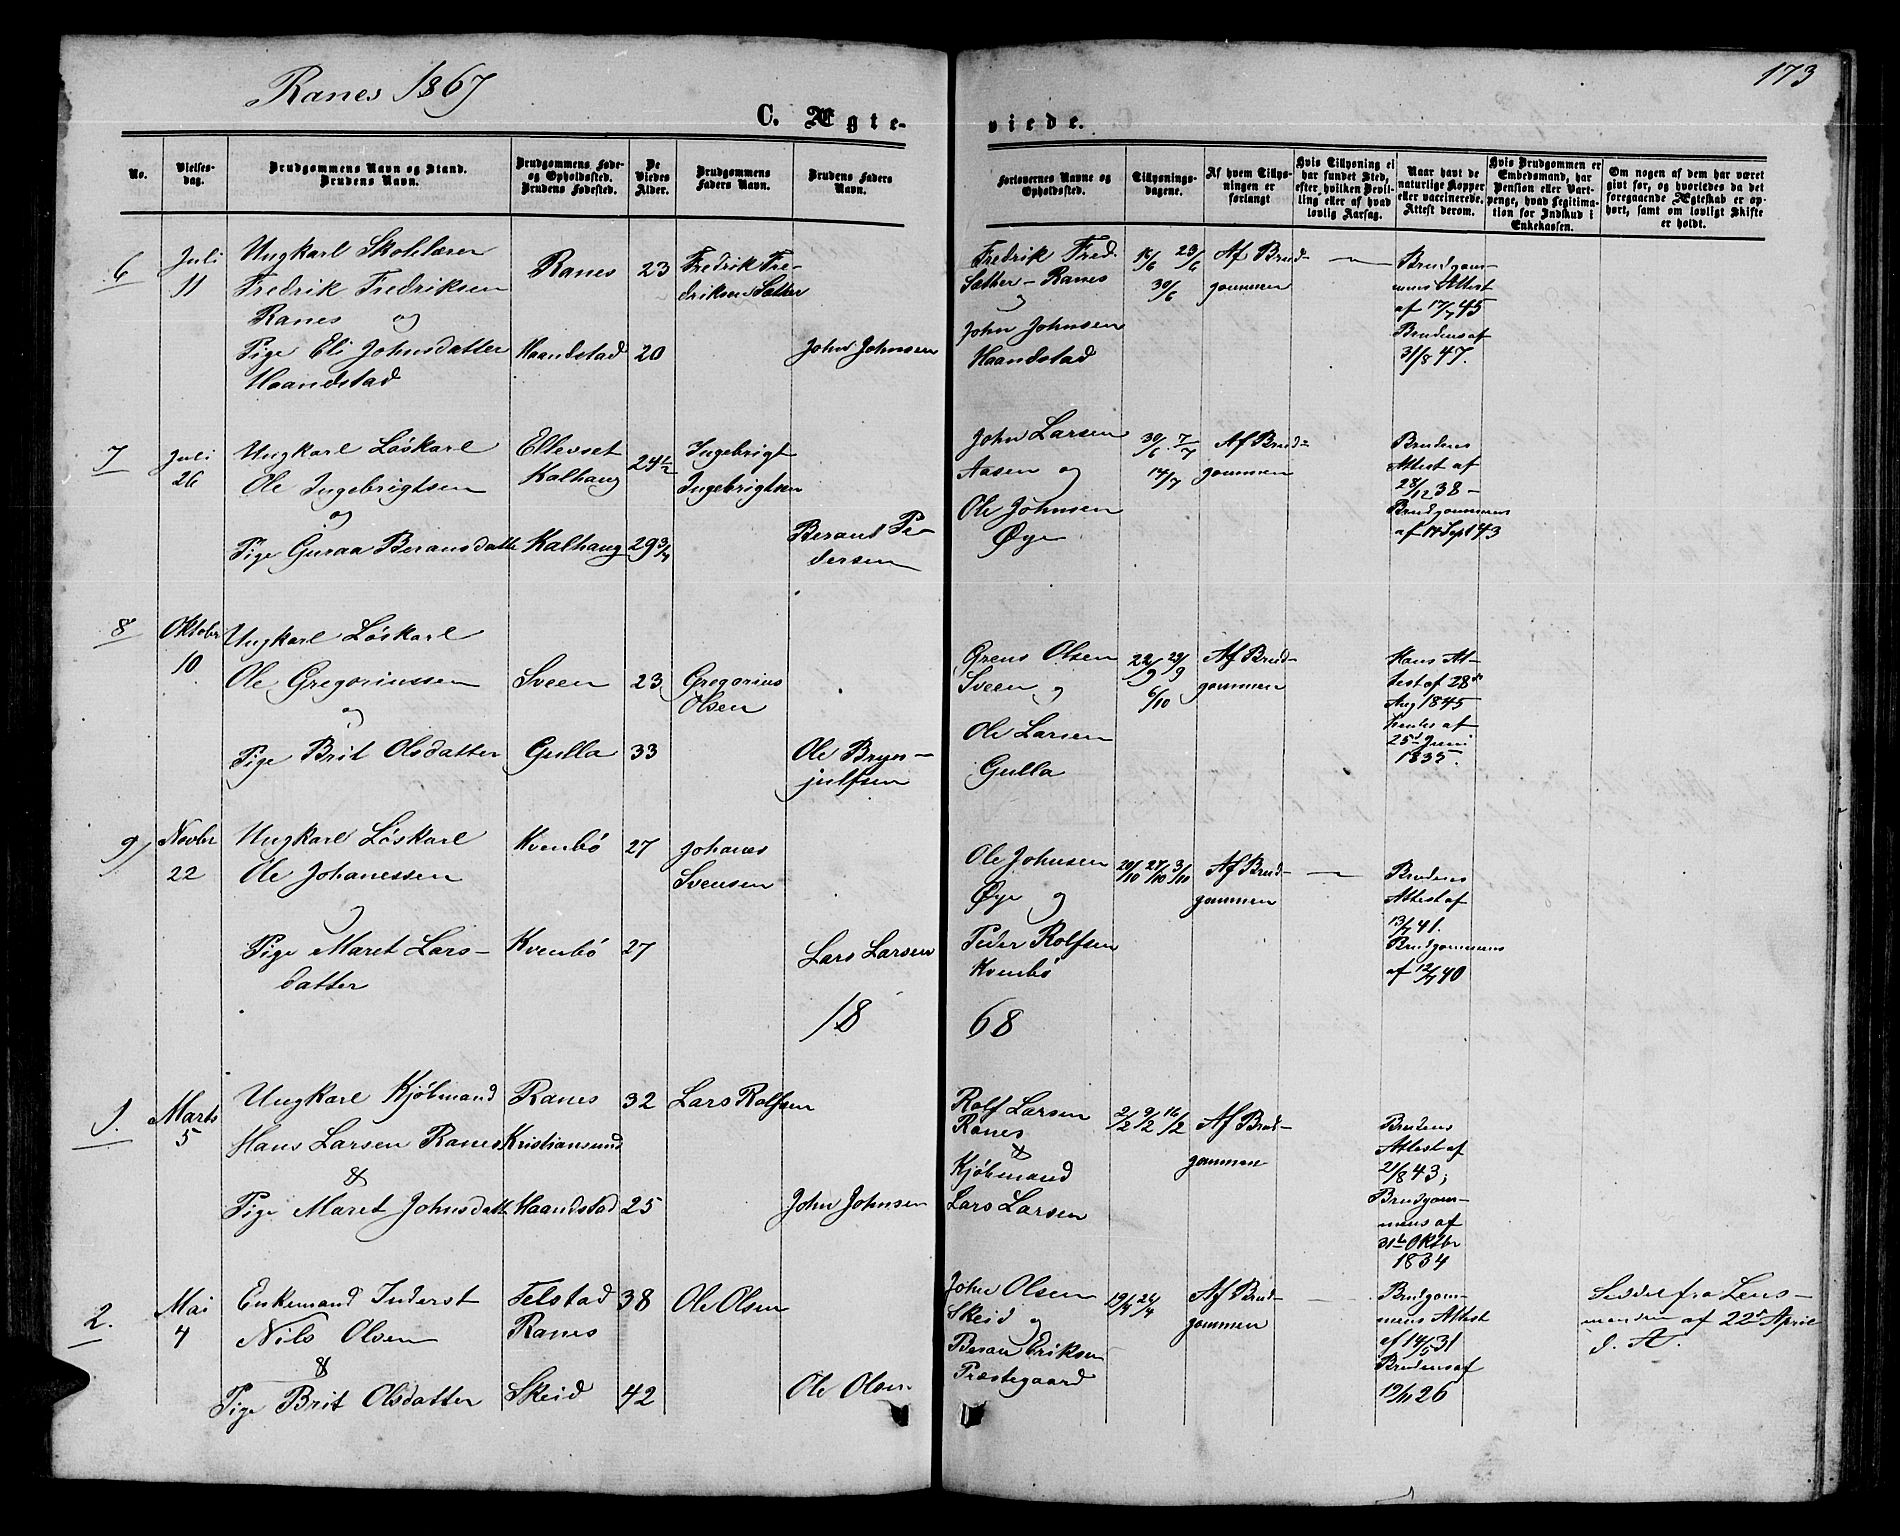 Ranes 1867
173
C. Ægte-
viede.
No.
Vielses-
dag.
Brudgommens Navn og Stand.
Brudens Navn.
Brudgommens Føde-
og Opholdssted.
Brudens Fødested.
De
Viedes
Alder.
Brudgommens
Faders Navn.
Brudens Faders
Navn.
Forlovernes Navne og
Opholdssted.
Tillysnings-
dagene.
Af hvem Tillys-
ningen er
forlangt
Hvis Tillysning ei
har fundet Sted,
efter hvilken Bevil-
ling eller af hvad
lovlig Aarsag.
Naar havt de
naturlige Kopper
eller vaccinerede.
Attest derom.
Hvis Brudgommen er
Embedsmand, har
Pension eller Vart-
penge, hvad Legitima-
tion for Indskud i
Enkekassen.
Om nogen af dem har været
gift før, og hvorledes da det
foregaaende Ægteskab er op-
hørt, samt om lovligt Skifte
er holdt.
6
Juli
11
Ungkarl Skolelærer
Fredrik Fredriksen
Ranes og
Pige Eli Johnsdatter
Haandstad
Ranes
Haandstad
23
20
Fredrik Fre-
driksen Sæther
John Johnsen
Fredrik Fred.
Sæther - Ranes
og
John Johnsen
Haandstad
16/6 23/6
30/6
Af Brud-
gommen
Brudgom-
mens Attest
af 17/7 45
Brudens af
31/8 47.
7
Juli
26
Ungkarl Løskarl
Ole Ingebrigtsen
og
Pige Guraa Beransdatte
Ellevset
Kalhaug
Kalhaug
24½
29¾
Ingebrigt
Ingebrigtsen
Berant Pe-
dersen
John Larsen
Aasen og
Ole Johnsen
Øye
30/6. 7/7
14/7
Af Brud-
gommen
Brudens
Attest af
28/12 38 -
Brudgommens
af 14 Sept 43
8
Oktober
10
Ungkarl Løskarl
Ole Gregoriussen
og
Pige Brit Olsdatter
Sveen
Gulla
23
33
Gregorius
Olsen
Ole Bryn-
julfsen
Grens Olsen
Sveen og
Ole Larsen
Gulla
22/9 29/9
6/10
Af Brud-
gommen
Hans At-
test af 28de
Aug 1845
hendes af
25d Juni
1835.
9
Novbr
22
Ungkarl Løskarl
Ole Johanessen
og
Pige Maret Lars-
datter
Kvenbø
Kvenbø
27
27
Johanes
Svensen
Lars Larsen
Ole Johnsen
Øye og
Peder Rolfsen
Kvenbø
20/10 27/10 3/10
Af Brud-
gommen
Brudens
Attest af
13/7 41.
Brudgommens
af 12/7 40
1868
1.
Marts
5
Ungkarl Kjøbmand
Hans Larsen Ranes
&
Pige Maret Johnsdatt
Ranes
Kristiansund
Haandstad
32
25
Lars Rolfsen
John Johnsen
Rolf Larsen
Ranes
&
Kjøbmand
Lars Larsen
2/2 9/2 16/2
Af Brud-
gommen
Brudens
Attest af
21/8 43;
Brudgom-
mens af
31te Oktbr
1834
2.
Mai
4
Enkemand Inderst
Nils Olsen
&
Pige Brit Olsdatter
Telstad
Ranes
Skeid
38
42
Ole Olsen
Ole Olsen
John Olsen
Skeid og
Beran Eriksen
Præstegaard
19/4 26/4
Af Brud-
gommen
Brudgom-
mens Attest
af 14/5 31
Brudens af
19/11 26
Seddel fra Lens-
manden af 22d April
d. A.